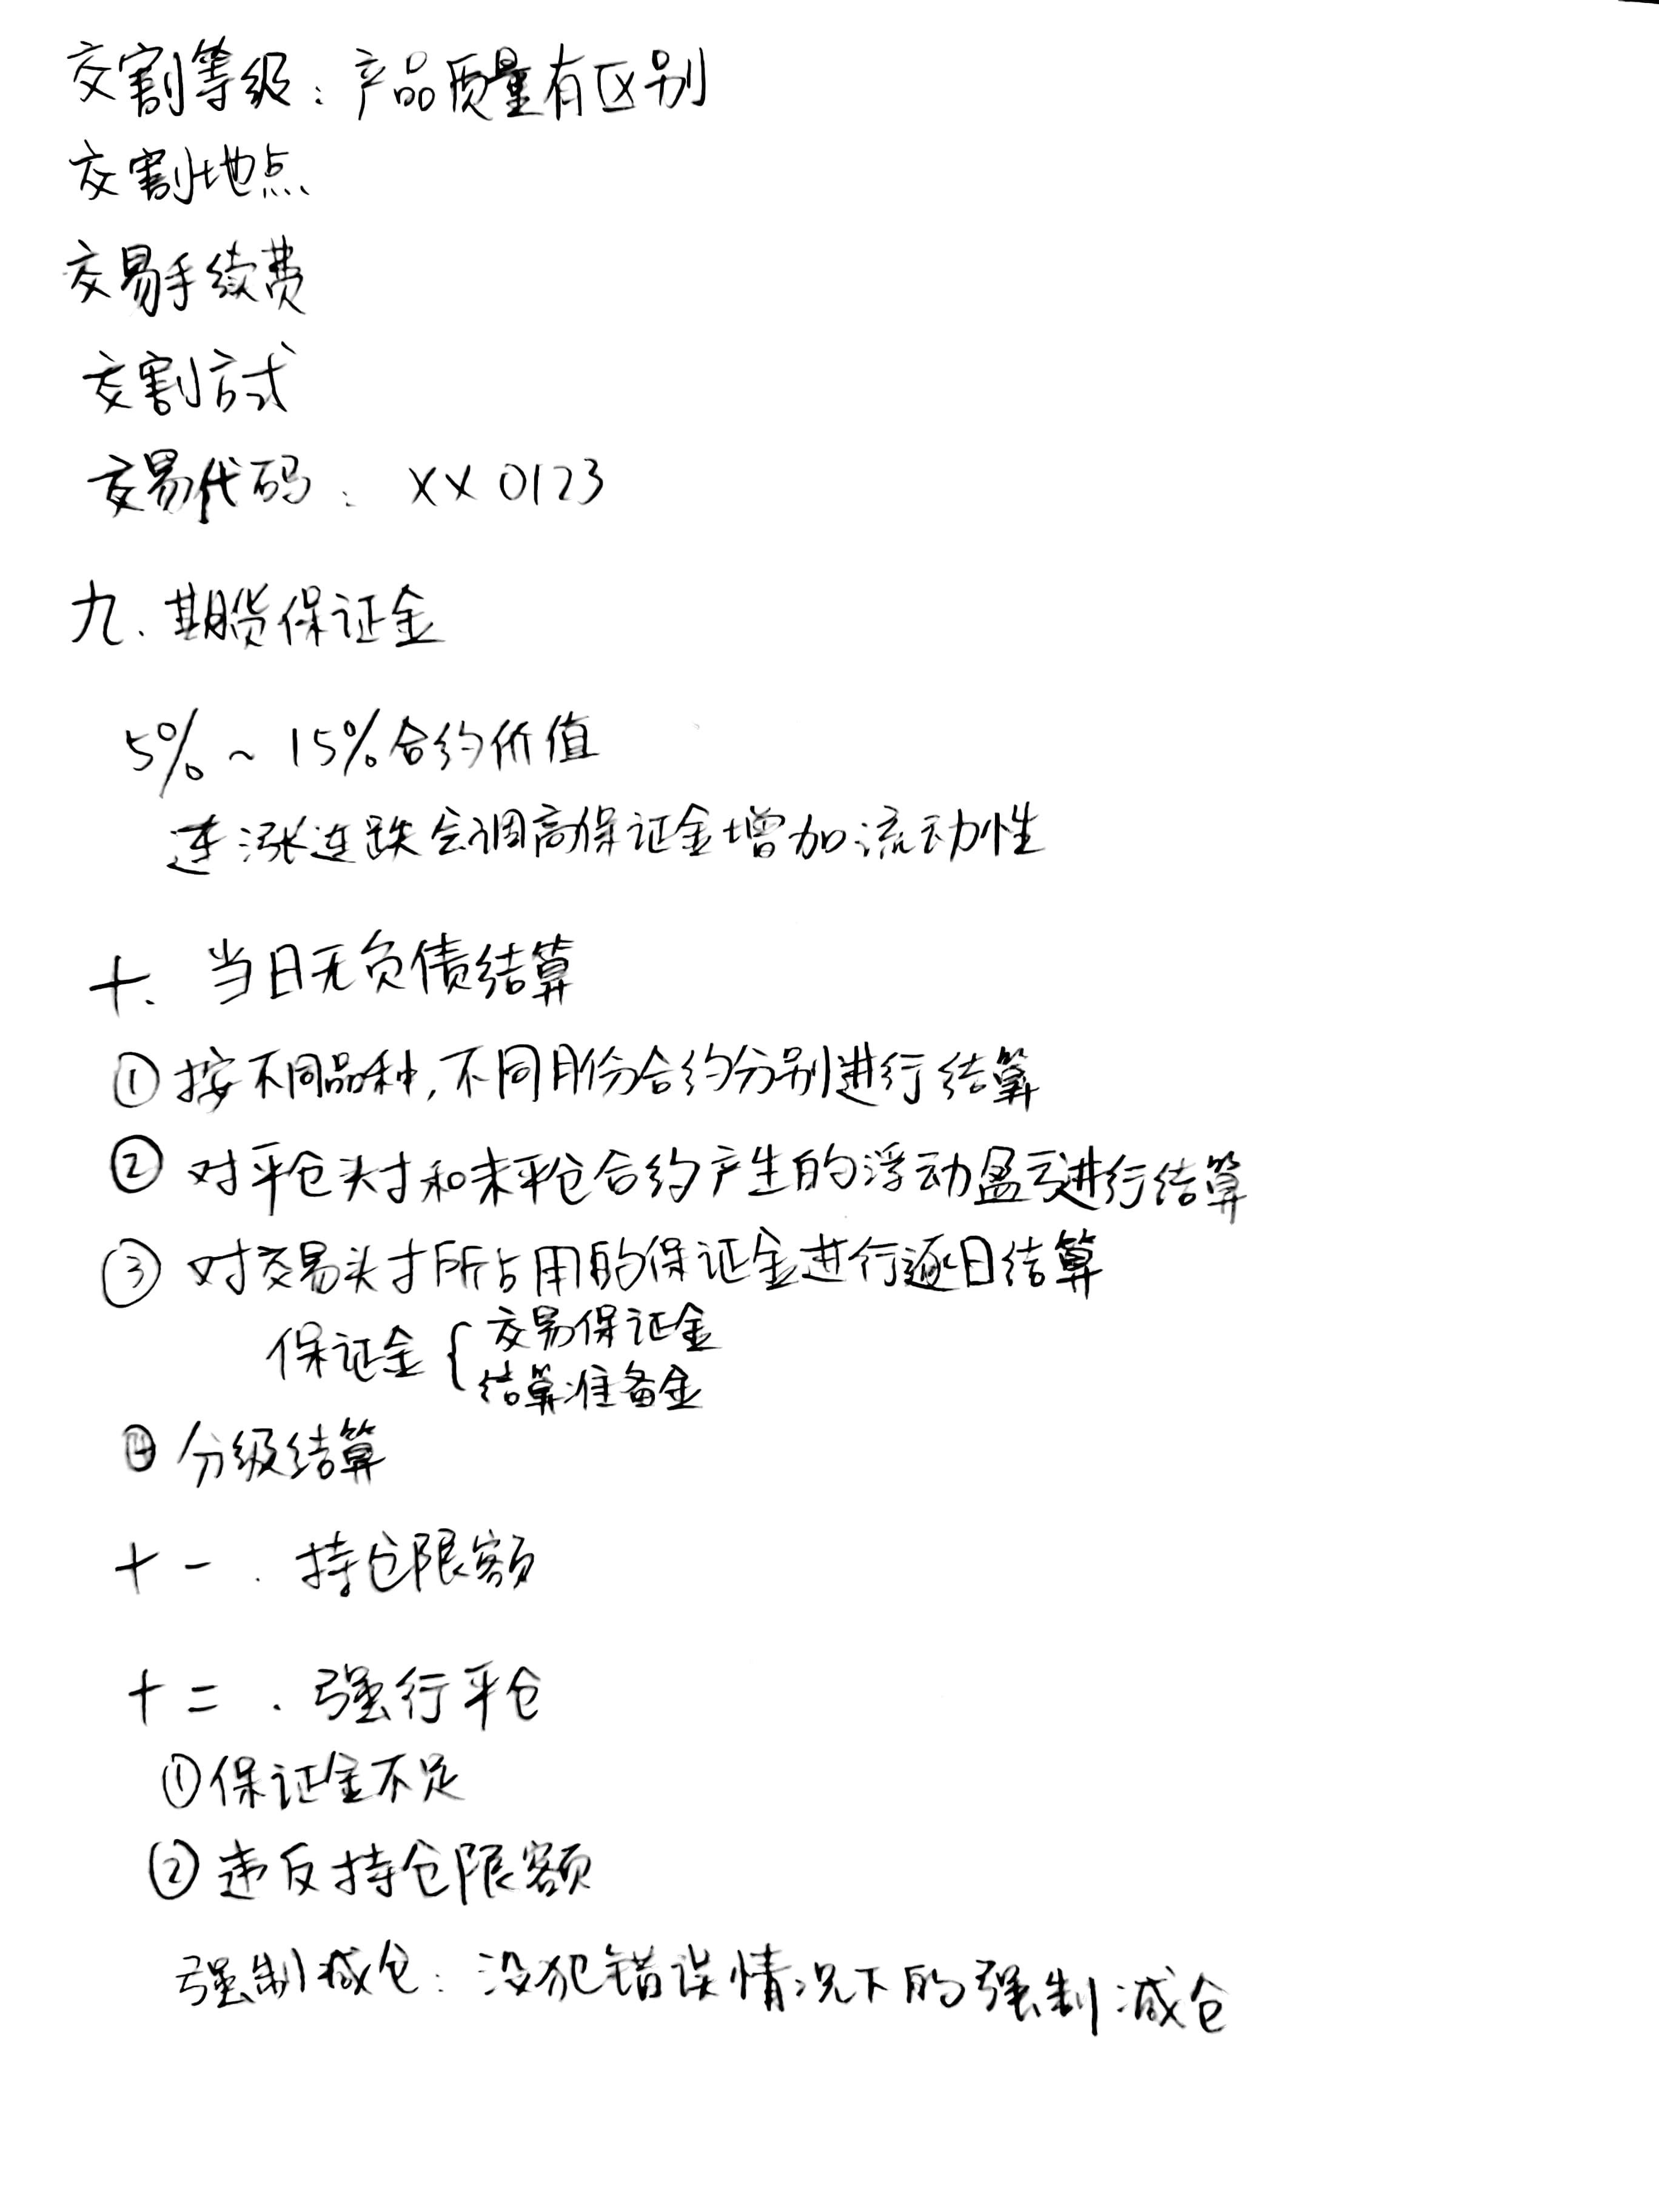 交割等级：产品质量有区别
交割地点
交易手续费
交割方式
交易代码：XX0123
九．期货保证金
5%～15%合约价值
连涨连跌会调高保证金增加流动性
十、当日无负债结算
①按不同品种,不同月份合约分别进行结算
②对平仓头寸和未平仓合约产生的浮动盈亏进行结算
③对交易头寸所占用的保证金进行逐日结算
保证金{交易保证金
结算准备金
④分级结算
十一．持仓限额
十二．强行平仓
①保证金不足
②违反持仓限额
强制减仓：没犯错误情况下的强制减仓